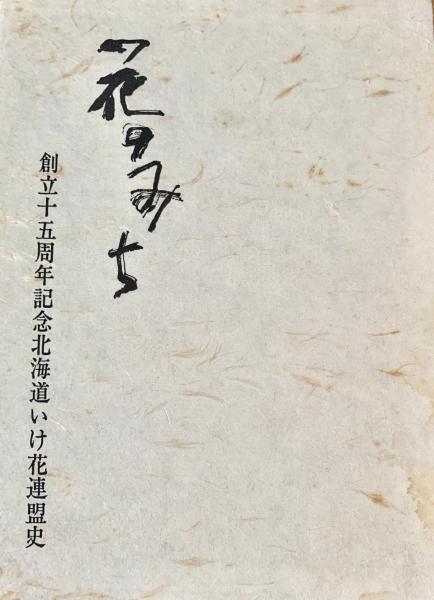 花のみち
創立十五周年記念北海道いけ花連盟史